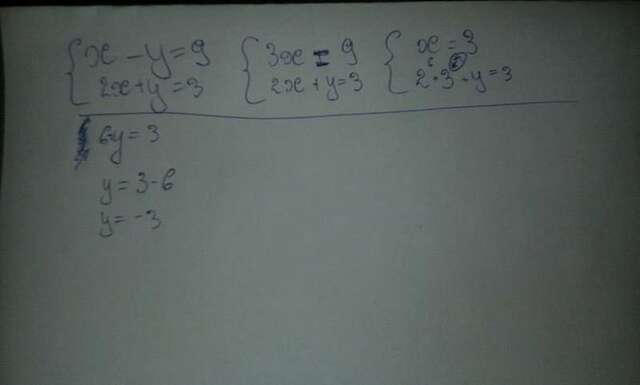 x - y = 9
2x + y = 3
3x = 9
2x + y = 3
x = 3
6
2 · 3 + y = 3
6 y = 3
y = 3 - 6
y = -3